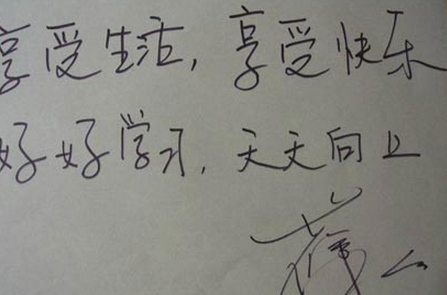 享受生活,享受快乐
好好学习,天天向上